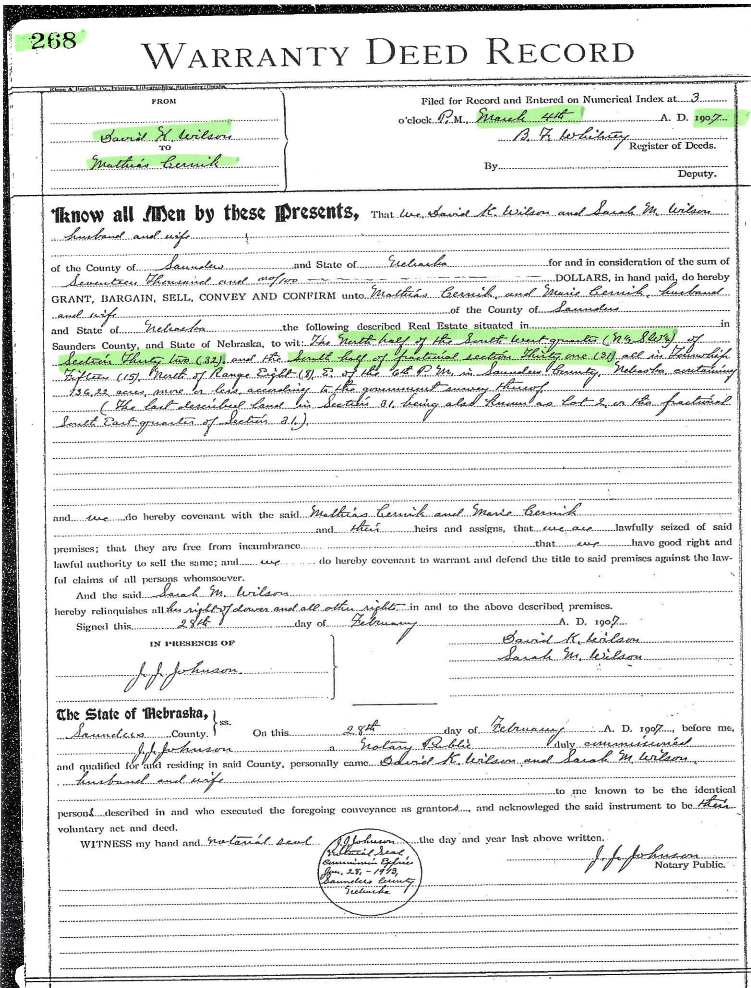 268
WARRANTY DEED RECORD
FROM
David K. Wilson
TO
Mathias Cernik
Filed for Record and Entered on Numerical Index at 3
o'clock P. M., March 4th A. D. 1907
B. F. Whitney
Register of Deeds.
By
Deputy.
Know all Men by these Presents, That We, David K. Wilson and Sarah M. Wilson
husband and wife
of the County of Saunders and State of Nebraska for and in consideration of the sum of
Seventeen Thousand and no/100 DOLLARS, in hand paid, do hereby
GRANT, BARGAIN, SELL, CONVEY AND CONFIRM unto Mathias Cernik and Marie Cernik, husband
and wife of the County of Saunders
and State of Nebraska the following described Real Estate situated in in
Saunders County, and State of Nebraska, to wit: The North half of the South West quarter (N½ SW¼) of
Section Thirty two (32), and the South half of fractional section Thirty one (31) all in Township
Fifteen (15), North of Range Eight (8), E. of the 6th P. M. in Saunders County, Nebraska containing
136.22 acres, more or less according to the government survey thereof.
(The last described land in Section 31 being also known as Lot 2, or the fractional
South East quarter of Section 31.)
and we do hereby covenant with the said Mathias Cernik and Marie Cernik
and their heirs and assigns, that we are lawfully seized of said
premises; that they are free from incumbrance that we have good right and
lawful authority to sell the same; and we do hereby covenant to warrant and defend the title to said premises against the law-
ful claims of all persons whomsoever.
And the said Sarah M. Wilson
hereby relinquishes all her right of dower and all other rights in and to the above described premises.
Signed this 28th day of February A. D. 1907
IN PRESENCE OF
David K. Wilson
Sarah M. Wilson
J. J. Johnson
The State of Nebraska, } ss.
Saunders County. On this 28th day of February A. D. 1907, before me,
J. J. Johnson a Notary Public duly commissioned
and qualified for and residing in said County, personally came David K. Wilson and Sarah M. Wilson
husband and wife
to me known to be the identical
persons described in and who executed the foregoing conveyance as grantors, and acknowleged the said instrument to be their
voluntary act and deed.
WITNESS my hand and notarial seal the day and year last above written.
J. J. Johnson
Notarial Seal
Commission Expires
Jan. 28, - 1913,
Saunders County
Nebraska
J. J. Johnson
Notary Public.